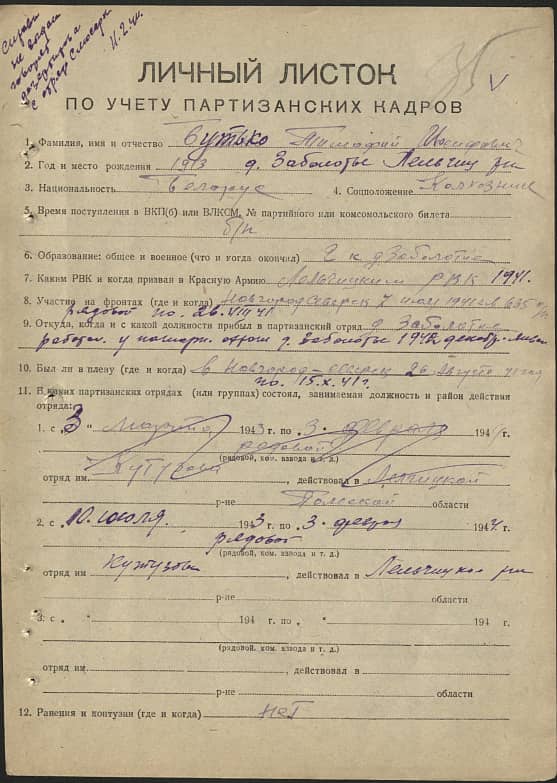 11.2.44.
35
V
ЛИЧНЫЙ ЛИСТОК
ПО УЧЕТУ ПАРТИЗАНСКИХ КАДРОВ
1. Фамилия, имя и отчество Бутько Тимофий
2. Год и место рождения 1913 д. Заболотье Лельчиц рн
3. Национальность Белорус 4. Соцположение Колхозник
5. Время поступления в ВКП(б) или ВЛКСМ, № партийного или комсомольского билета
б/п
6. Образование: общее и военное (что и когда окончил) 2 к д Заболотье
7. Каким РВК и когда призван в Красную Армию Лельчицким РВК 1941.
8. Участие на фронтах (где и когда) Новгород Северск 7 июля 1941 635 п/п
рядовой по. 26.VIII 41
9. Откуда, когда и с какой должности прибыл в партизанский отряд д Заболотье
работал у д. Заболотье 1942 декабр.
10. Был ли в плену (где и когда) в Новгород-Северск 26 Августа 41 года
по. 15.X.41г.
11. В каких партизанских отрядах (или группах) состоял, занимаемая должность и район действия
отряда:
1. с „3“ Марта 1943 г. по „3“ февраля 194 г.
рядовой
(рядовой, ком. взвода и т. д.)
отряд им Кутузова, действовал в Лельчицкой
р-не Полесской области
2. с „10“ июля. 1943 г. по „3“ февраля 1944 г.
рядовой
(рядовой, ком. взвода и т. д.)
отряд им Кутузова, действовал в Лельчицком рн
р-не области
3. с „ “ 194 г. по „ “ 194 г.
(рядовой, ком. взвода и т. д.)
отряд им. , действовал в
р-не области
12. Ранения и контузии (где и когда) нет